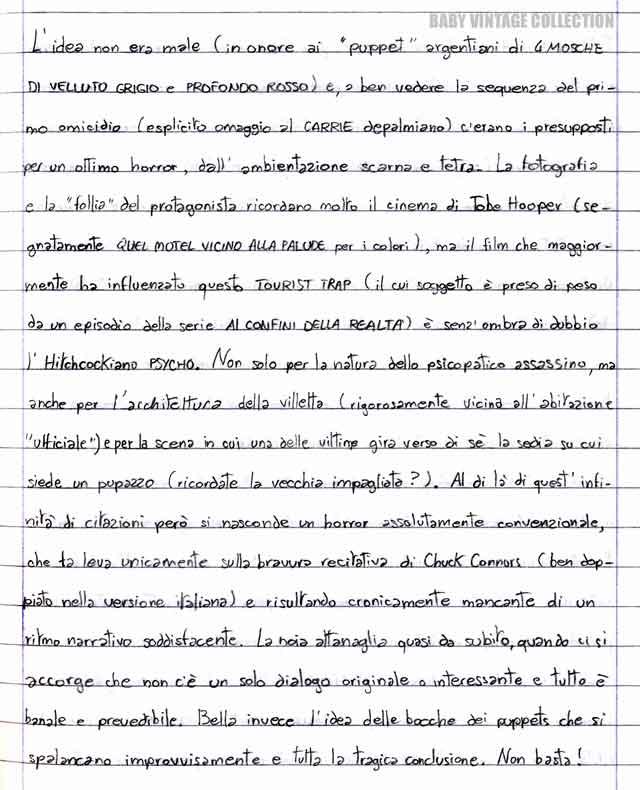 BABY VINTAGE COLLECTION
L'idea non era male (in onore ai "puppet" argentiani di 4 MOSCHE
DI VELLUTO GRIGIO e PROFONDO ROSSO) e, a ben vedere la sequenza del pri-
mo omicidio (esplicito omaggio al CARRIE depalmiano) c'erano i presupposti
per un ottimo horror, dall'ambientazione scarna e tetra. La fotografia
e la "follia" del protagonista ricordano molto il cinema di Tobe Hooper (se-
gnatamente QUEL MOTEL VICINO ALLA PALUDE per i colori), ma il film che maggior-
mente ha influenzato questo TOURIST TRAP (il cui soggetto è preso di peso
da un episodio della serie AI CONFINI DELLA REALTA') è senz'ombra di dubbio
l'Hitchcockiano PSYCHO. Non solo per la natura dello psicopatico assassino, ma
anche per l'architettura della villetta (rigorosamente vicina all'abitazione
"ufficiale") e per la scena in cui una delle vittime gira verso di sè la sedia su cui
siede un pupazzo (ricordate la vecchia impagliata?). Al di là di quest'infi-
nità di citazioni però si nasconde un horror assolutamente convenzionale,
che fa leva unicamente sulla bravura recitativa di Chuck Connors (ben dop-
piato nella versione italiana) e risultando cronicamente mancante di un
ritmo narrativo soddisfacente. La noia attanaglia quasi da subito, quando ci si
accorge che non c'è un solo dialogo originale o interessante e tutto è
banale e prevedibile. Bella invece l'idea delle bocche dei puppets che si
spalancano improvvisamente e tutta la tragica conclusione. Non basta!